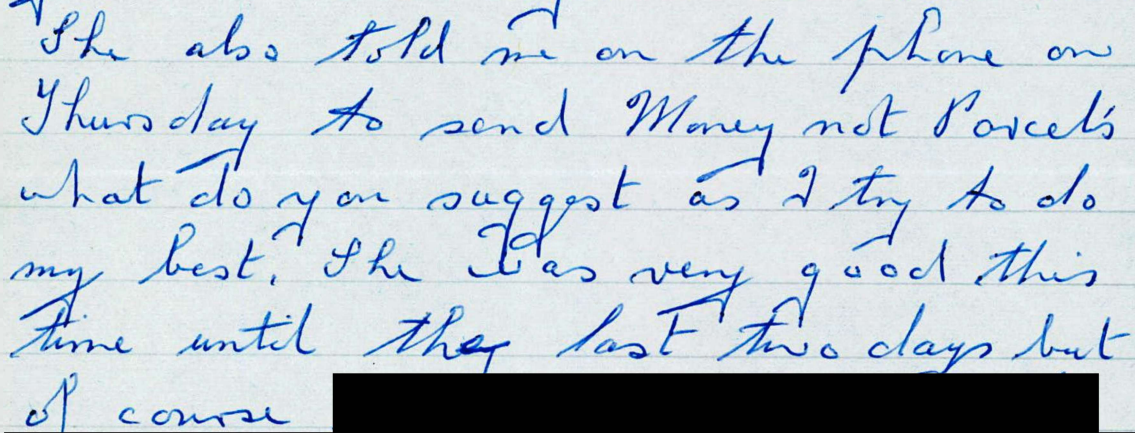 She also told me on the phone on
Thursday to send Money not Parcels
what do you suggest as I try to do
my best. She was very good this
time until the last two days but
of course